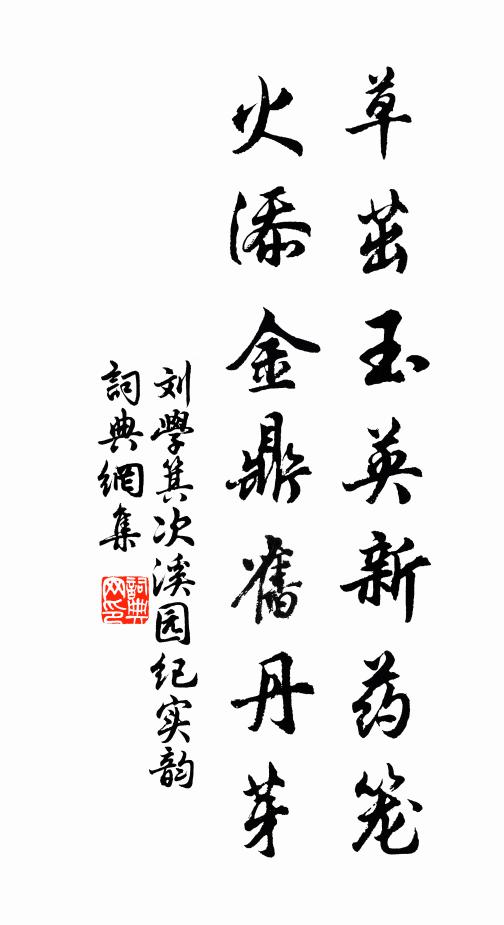 草茁玉英新药笼
火添金鼎舊丹芽
刘學箕次溪园纪实韵
詞典網集
詞典網印